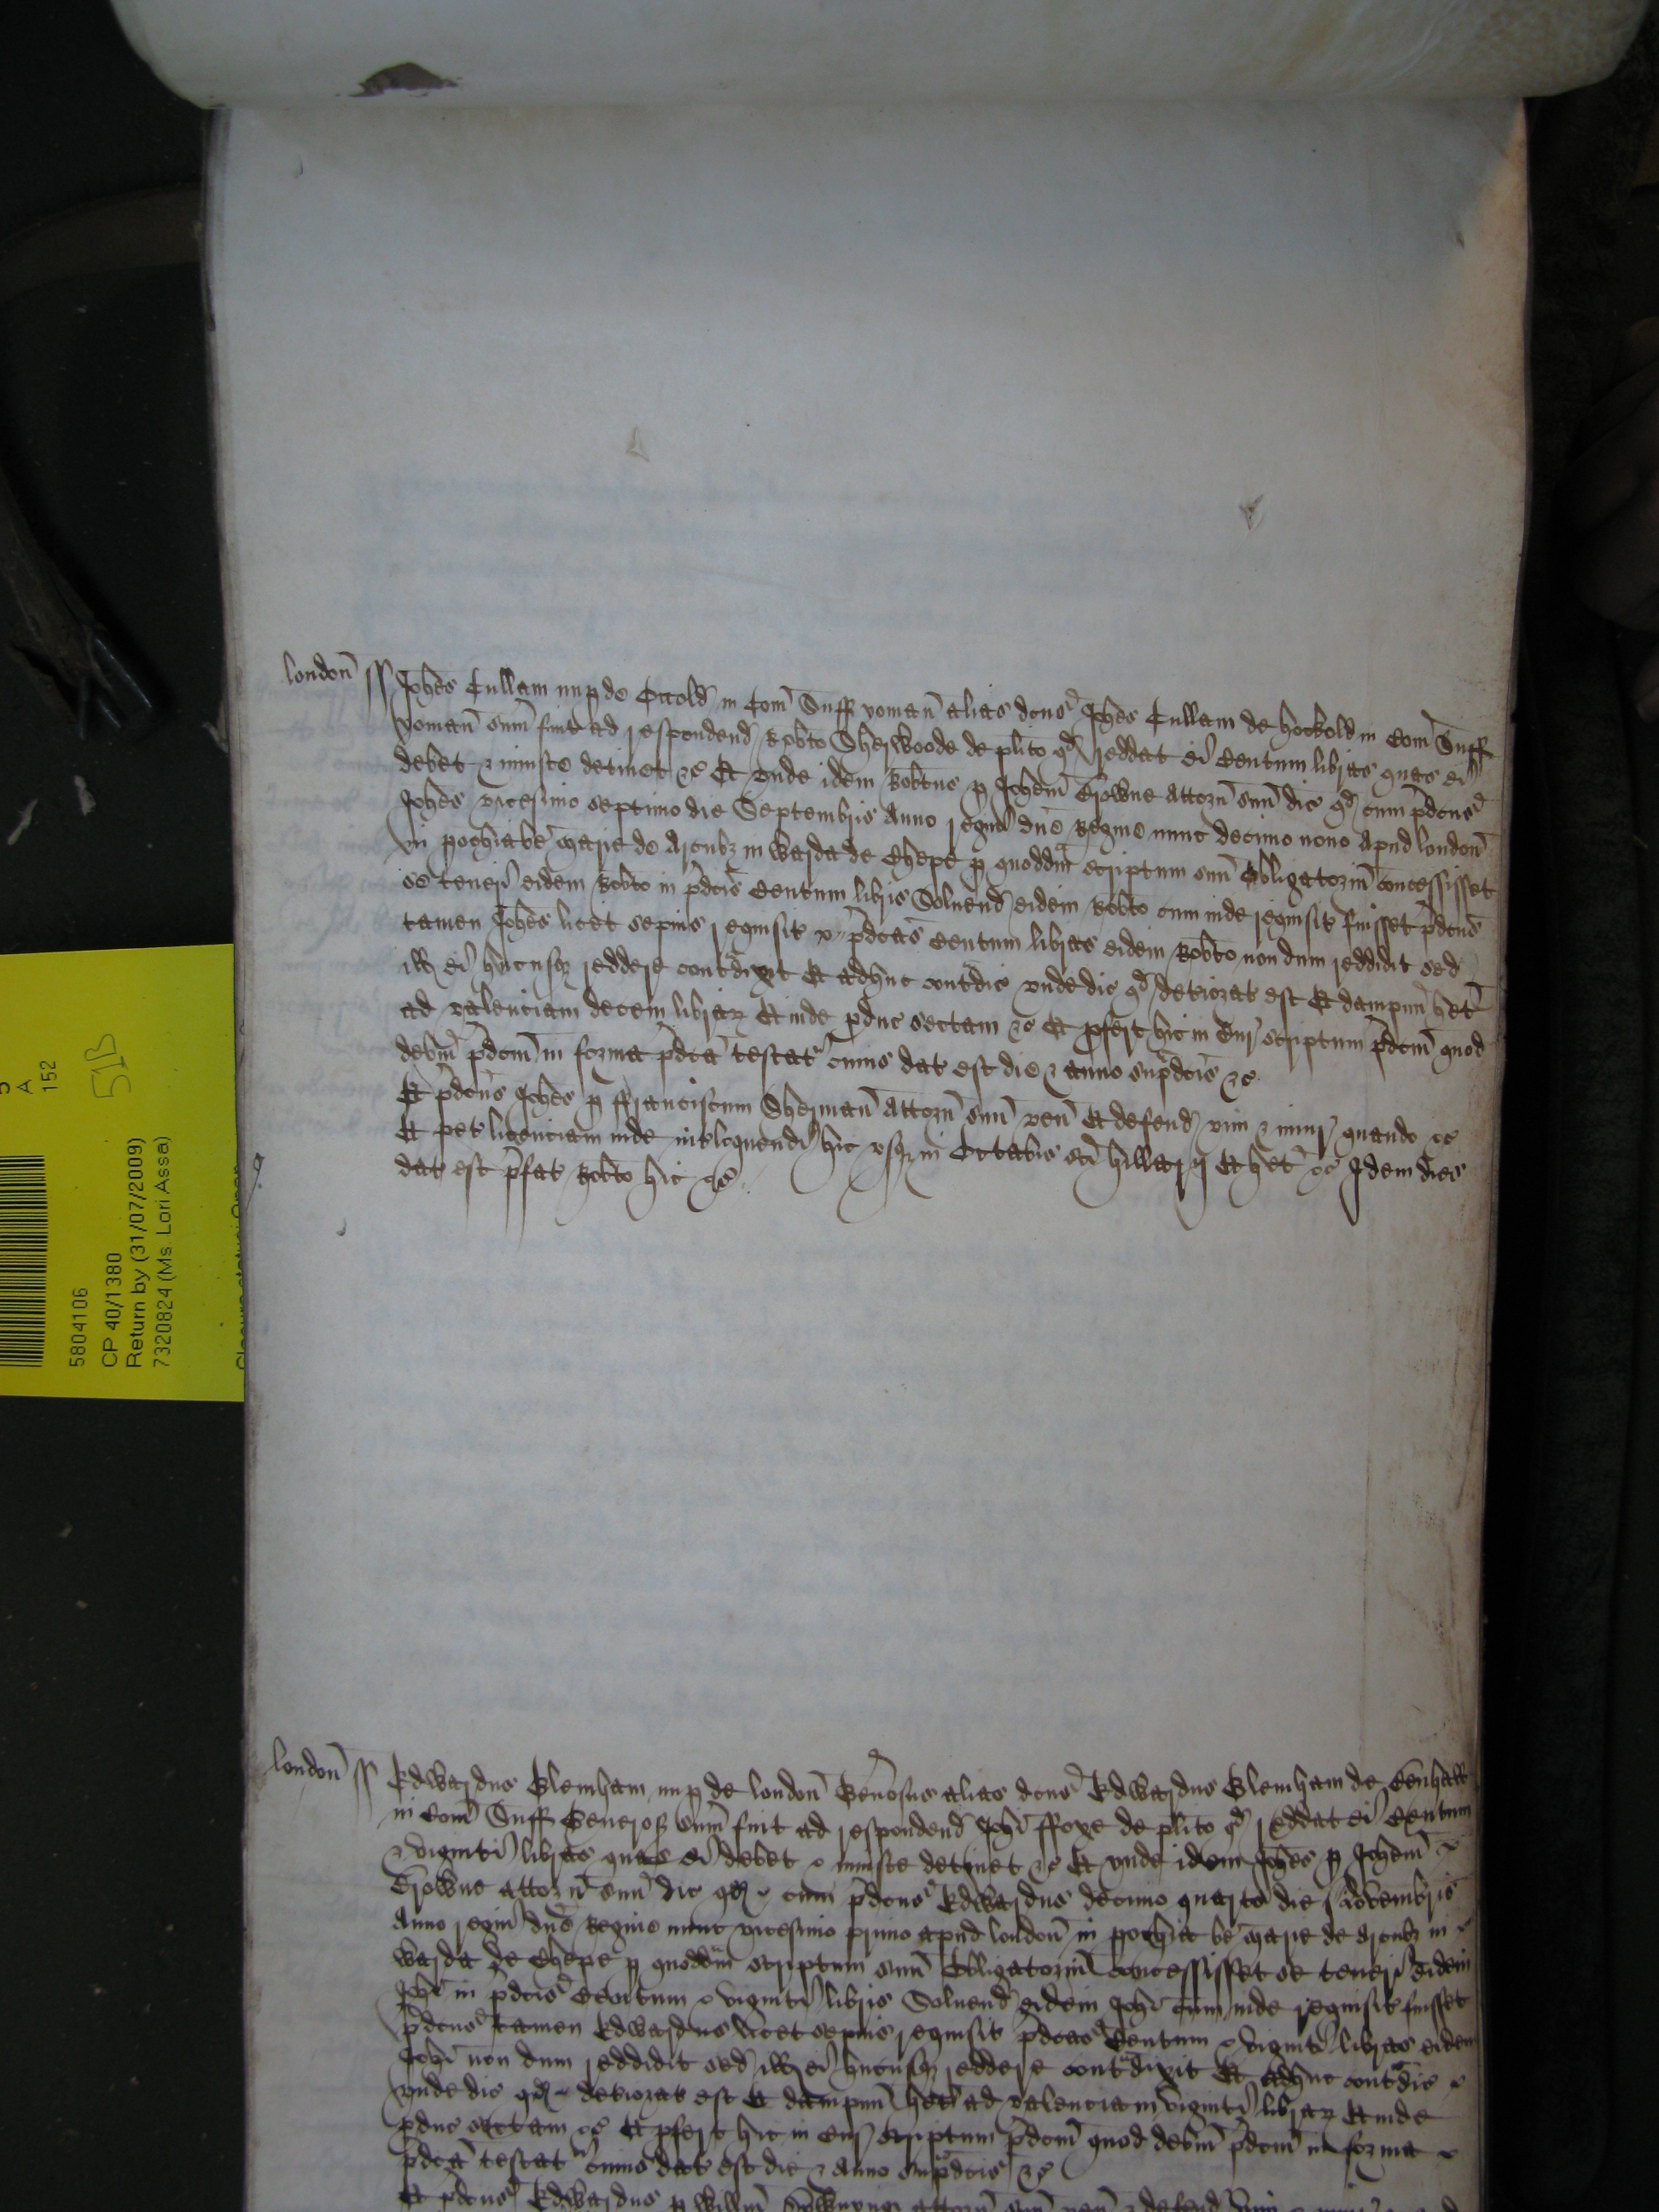 London ss Johes Cullam nup de Ottold in Com Suff yoman alias dcus Johes Cullam de hockold in Com Suff
yoman sum fuit ad respondend Robto Sherwoode de plito qd reddat ei Centum libras quas ei
debet & iniuste detinet &c Et unde idem Robtus p Johem Browne Attorn suu dic qd cum pdcus
Johes vicesimo septimo die Septembris Anno regni dne Regine nunc decimo nono apud london
in pochia be marie de Arcubz in Warda de Chepe p quoddm scriptum suu obligatorm concessisset
se teneri eidem Robto in pdcis Centum libris Soluend eidem Robto cum inde requisit fuisset pdcus
tamen Johes licet sepius requisit pdcas Centum libras eidem Robto non dum reddidit sed
ill ei hucusqz reddere contradixit Et adhuc contradic unde dic qd deteriorat est Et dampnu het
ad valenciam decem librar Et inde pduc sectam &c Et pfert hic in Cur scriptum pdcm quod
debm pdcm in forma pdca testat cuius dat est die & anno supradcis &c
Et pdcus Johes p ffranciscum Sherman Attorn suu ven Et defend vim & iniur quando &c
Et pet licenciam inde interloquendi hic usqz in Octabis sci hillarij Et het &c Idem dies
dat est pfat Robto hic &c
London ss Edwardus Glemham nup de london Generosus alias dcus Edwardus Glemham de Benhall
in Com Suff Generos sum fuit ad respondend Johi ffoxe de plito qd reddat ei Centum
& viginti libras quas ei debet & iniuste detinet &c Et unde idem Johes p Johem
Browne attorn suu dic qd cum pdcus Edwardus decimo quarto die Novembris
Anno regni dne Regine nunc vicesimo primo apud london in pochia be marie de Arcubz in
warda de Chepe p quoddm scriptum suu Obligatorm concessisset se teneri eidem
Johi in pdcis Centum & viginti libris Soluend eidem Johi cum inde requisit fuisset
pdcus tamen Edwardus licet sepius requisit pdcas Centum & viginti libras eidem
Johi non dum reddidit sed ill ei hucusqz reddere contradixit Et adhuc contradic
unde dic qd deteriorat est Et dampnu het ad valenciam viginti librar Et inde
pduc sectam &c Et pfert hic in Cur scriptum pdcm quod debm pdcm in forma
pdca testat cuius dat est die & Anno supradcis &c
Et pdcus Edwardus p Willm attorn suu ven & defend vim
152
51B
5804106
CP 40/1380
Return by (31/07/2009)
7320824 (Ms. Lori Assa)